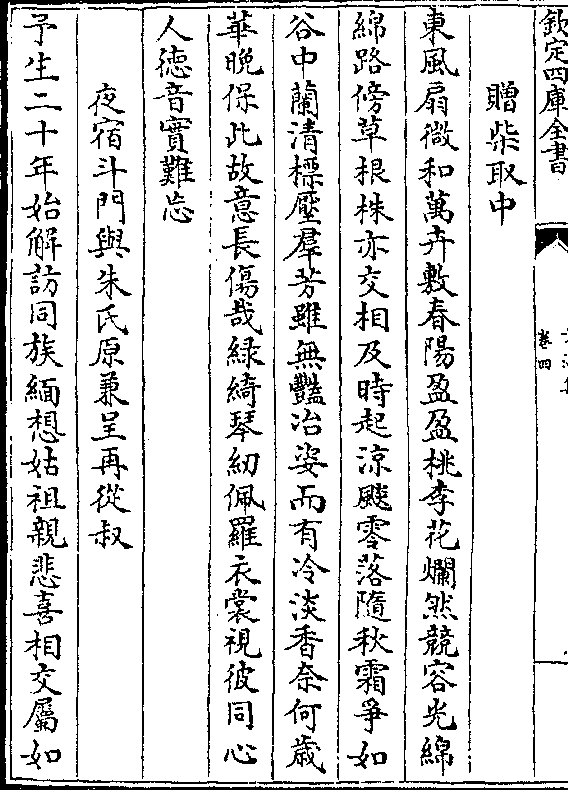 欽定四庫全書
卷四
贈柴取中
東風扇微和萬卉敷春陽盈盈桃李花爛然競容光綿
綿路傍草根株亦交相及時起涼颷零落隨秋霜爭如
谷中蘭清標壓羣芳雖無豔冶姿而有冷淡香奈何歲
華晚保此故意長傷哉緑綺琴紉佩羅衣裳視彼同心
人徳音實難忘
夜宿斗門與朱氏原兼呈再從叔
予生二十年始解訪同族緬想姑祖親悲喜相交屬如